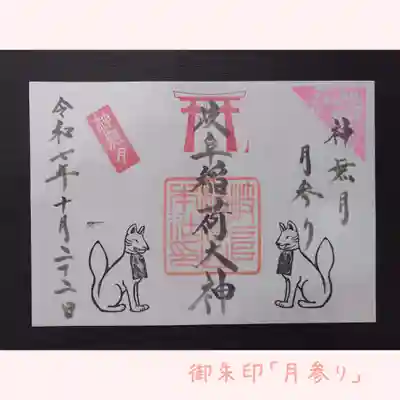 神無月
月参り
岐阜稲荷大神
神無月
令和七年十月二十二日
御朱印「月参り」